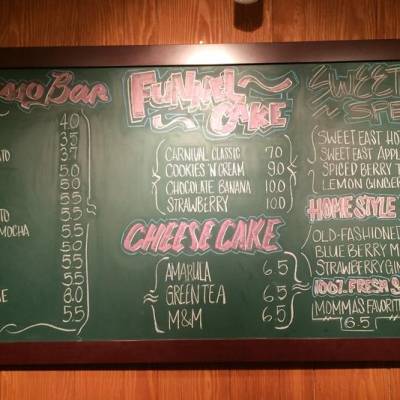 Bar
4.0
3.5
3.7
5.0
5.0
5.5
5.5
MOCHA 5.5
5.0
5.5
5.5
8.0
5.5
FUNNEL CAKE
CARNIVAL CLASSIC 7.0
COOKIES 'N CREAM 9.0
CHOCOLATE BANANA 10.0
STRAWBERRY 10.0
CHEESE CAKE
AMARULA 6.5
GREEN TEA 6.5
M&M 6.5
SWEET
SPE
SWEET EAST HO
SWEET EAST APPL
SPICED BERRY T
LEMON GINGER
HOME STYLE
OLD-FASHIONED
BLUEBERRY M
STRAWBERRY GIN
100% FRESH S
MOMMA'S FAVORIT
6.5